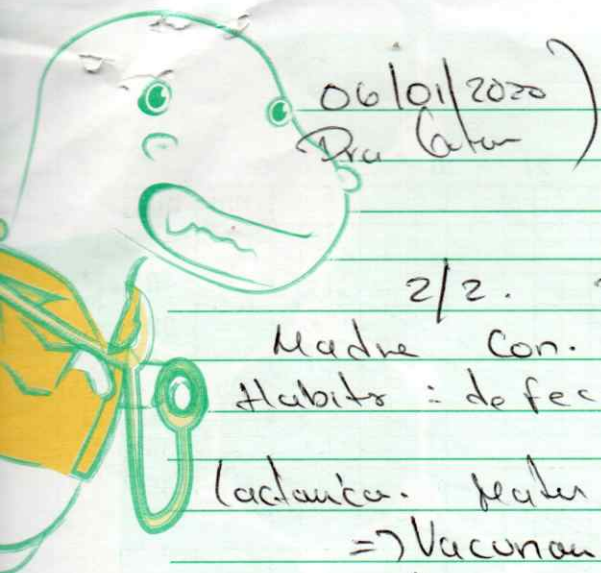 06/01/2020
Dra
2/2.
Madre Con.
Habitos : defec
Lactancia. Mater
=> Vacunan